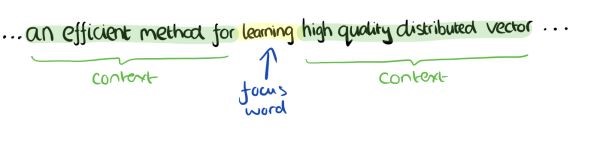 ...an efficient method for learning high quality distributed vector ...
context context
focus
word